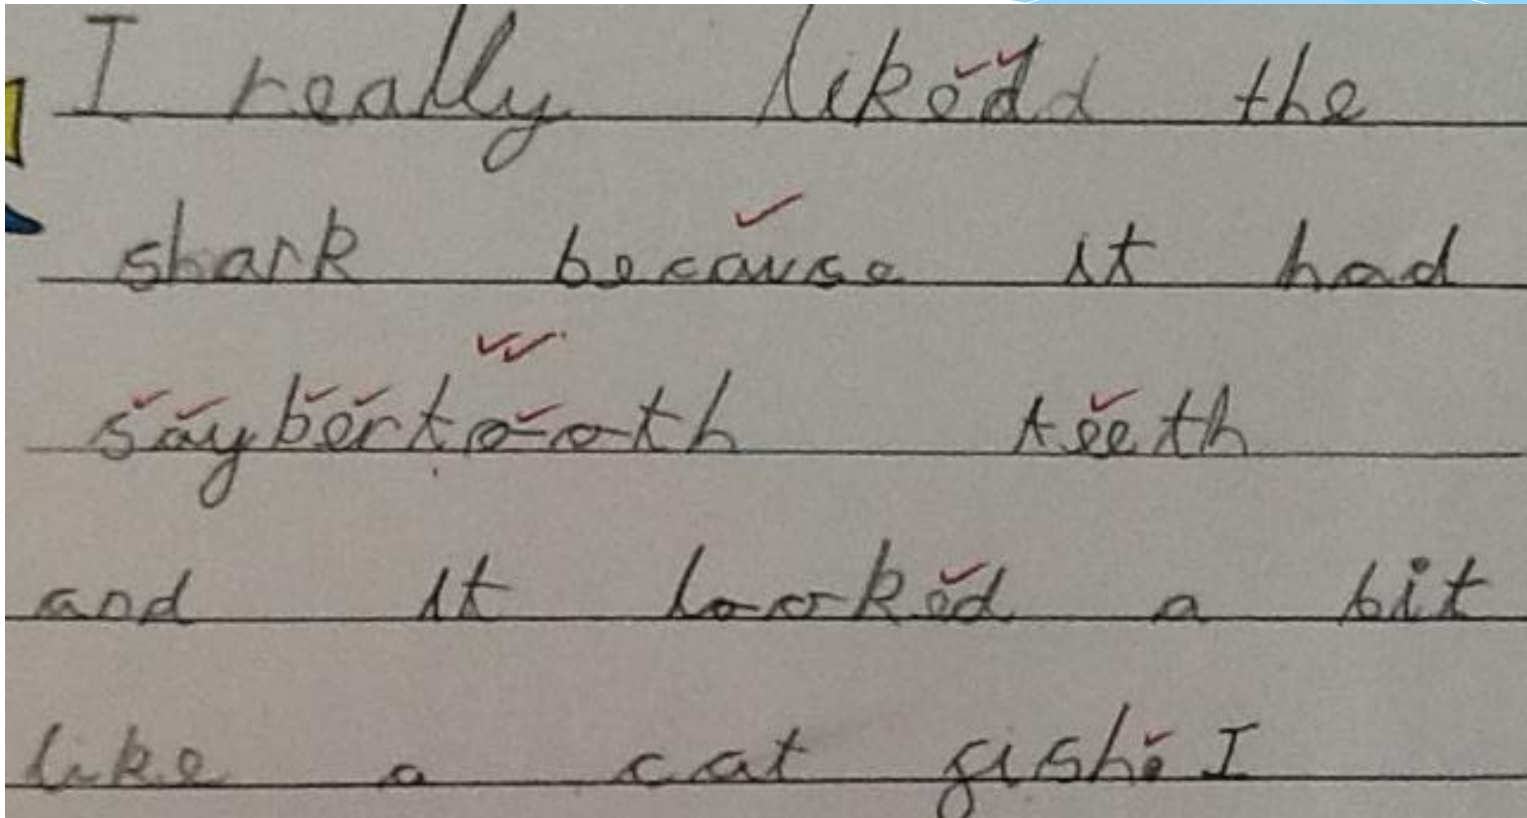 I really likedd the
shark because it had
saybertooth teeth
and it looked a bit
like a cat fish. I